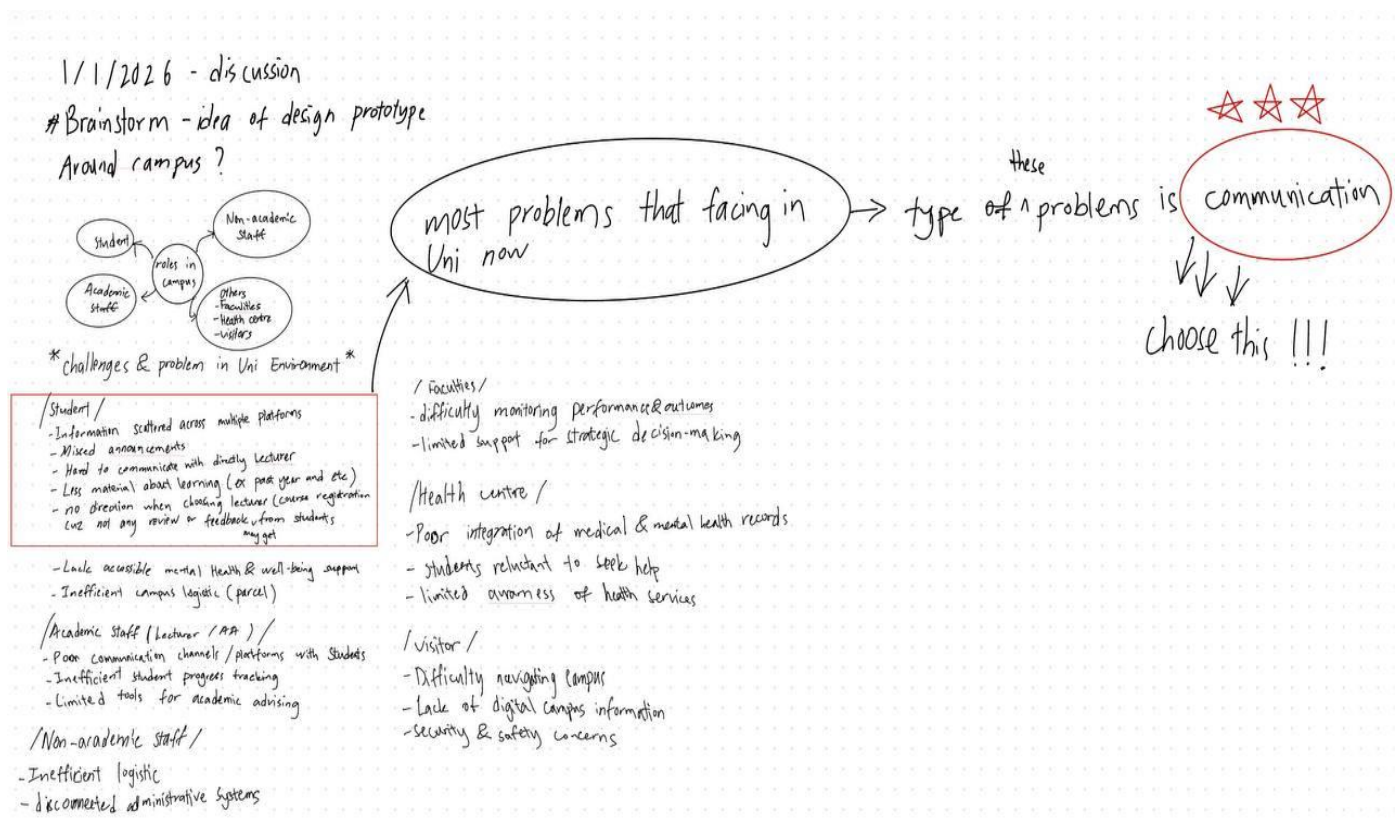 1/1/2026 - discussion
# Brainstorm - idea of design prototype
Around campus ?
Student
Non-academic
Staff
roles in
campus
Academic
Staff
Others
- Faculities
- Health centre
- visitors
* challenges & problem in Uni Environment *
/Student/
- Information scattered across multiple platforms
- Missed announcements
- Hard to communicate with directly lecturer
- Less material about learning (ex past year and etc)
- no direction when choosing lecturer (course registration
cuz not any review or feedback, from students
may get
- Lack accessible mental Health & well-being support
- Inefficient campus logistic (parcel)
/Academic Staff (Lecturer / AA) /
- Poor communication channels / platforms with Students
- Inefficient student progress tracking
- Limited tools for academic advising
/Non-academic staff/
- Inefficient logistic
- disconnected administrative systems
most problems that facing in
Uni now
these
type of ^ problems is communication
choose this !!!
/ Faculties /
- difficulty monitoring performance & outcomes
- limited support for strategic decision-making
/Health centre /
- Poor integration of medical & mental health records
- students reluctant to seek help
- limited awarness of health services
/ visitor /
- Difficulty navigating campus
- Lack of digital campus information
- security & safety concerns